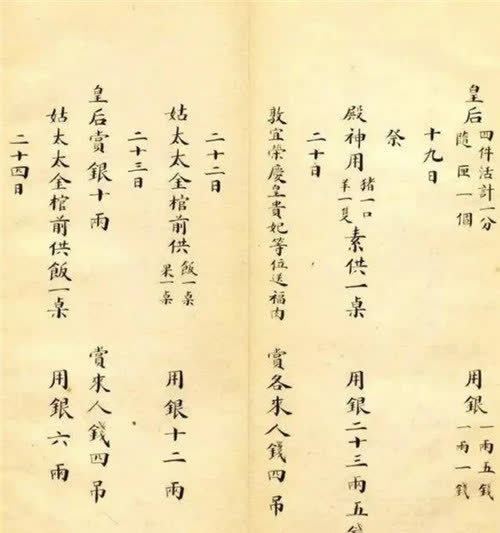 皇后四件活計一分隨匣一個 用銀一兩五錢一兩一錢
十九日
祭
殿神用豬一口羊一隻素供一桌 用銀二十三兩五錢
二十日
敦宜榮慶皇貴妃等位送福肉 賞各來人錢四吊
二十二日
姑太太全棺前供飯一桌果一桌 用銀十二兩
二十三日
皇后賞銀十兩 賞來人錢四吊
姑太太全棺前供飯一桌 用銀六兩
二十四日